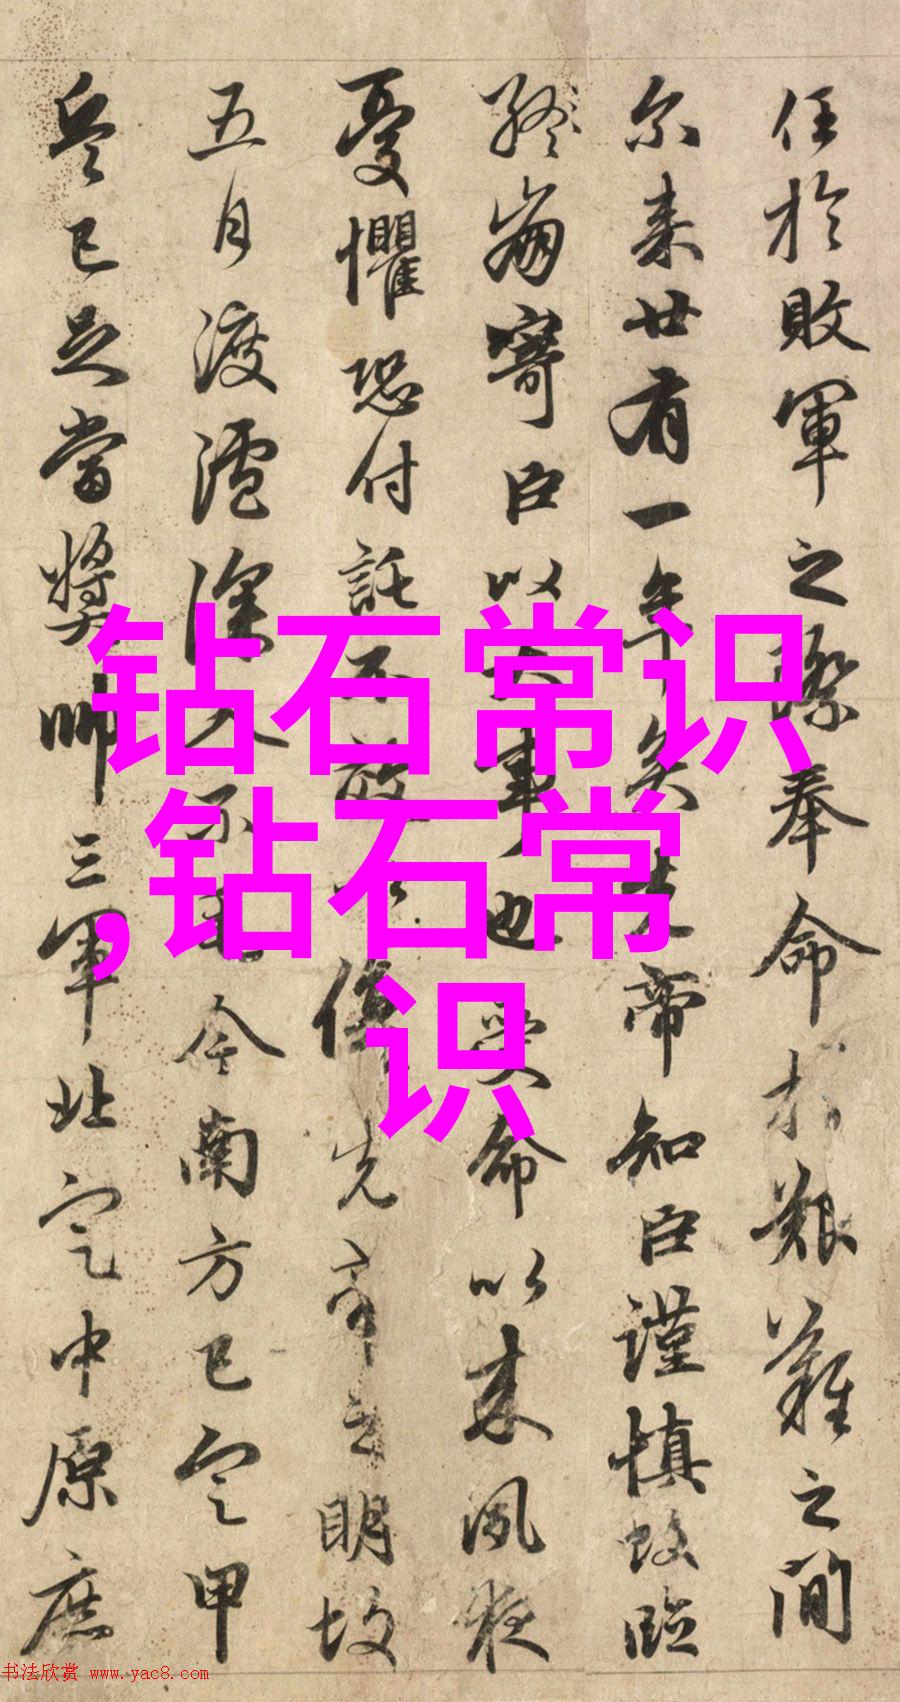 任於敗軍之際奉命於艱難之間
尒来廿有一年矣先帝知臣謹慎故臨
終崩寄臣以大事也受命以来夙夜
憂懼恐付託不效以傷先帝之明故
五月渡瀘深入不毛今南方已定甲
兵已足當奬帥三軍北定中原庶
钻石常识
,钻石常
识
书法欣赏 www.yac8.com